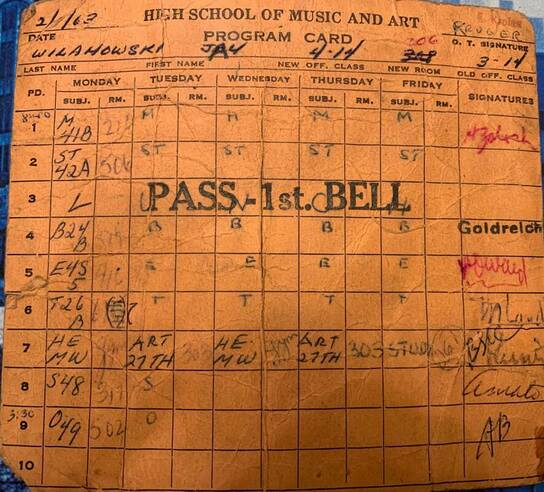 2/1/63 HIGH SCHOOL OF MUSIC AND ART
DATE PROGRAM CARD 206 KRUGER
O. T. SIGNATURE
WILAMOWSKI JAY 4-14 348 3-14
LAST NAME FIRST NAME NEW OFF. CLASS NEW ROOM OLD OFF. CLASS
PD. MONDAY TUESDAY WEDNESDAY THURSDAY FRIDAY SIGNATURES
SUBJ. RM. SUBJ. RM. SUBJ. RM. SUBJ. RM. SUBJ. RM.
1 M 41B M M M M
2 ST 42A 506 ST ST ST ST
3 L PASS - 1st. BELL
4 B24 B B B B B Goldreich
5 E45 5 E E E E Howard
6 T26 B T T T T
7 HE MW ART 27TH 303 HE MW Gym ART 27TH 303 STUDY
8 S48 317 S Amato
3:30
9 O49 502 O AB
10